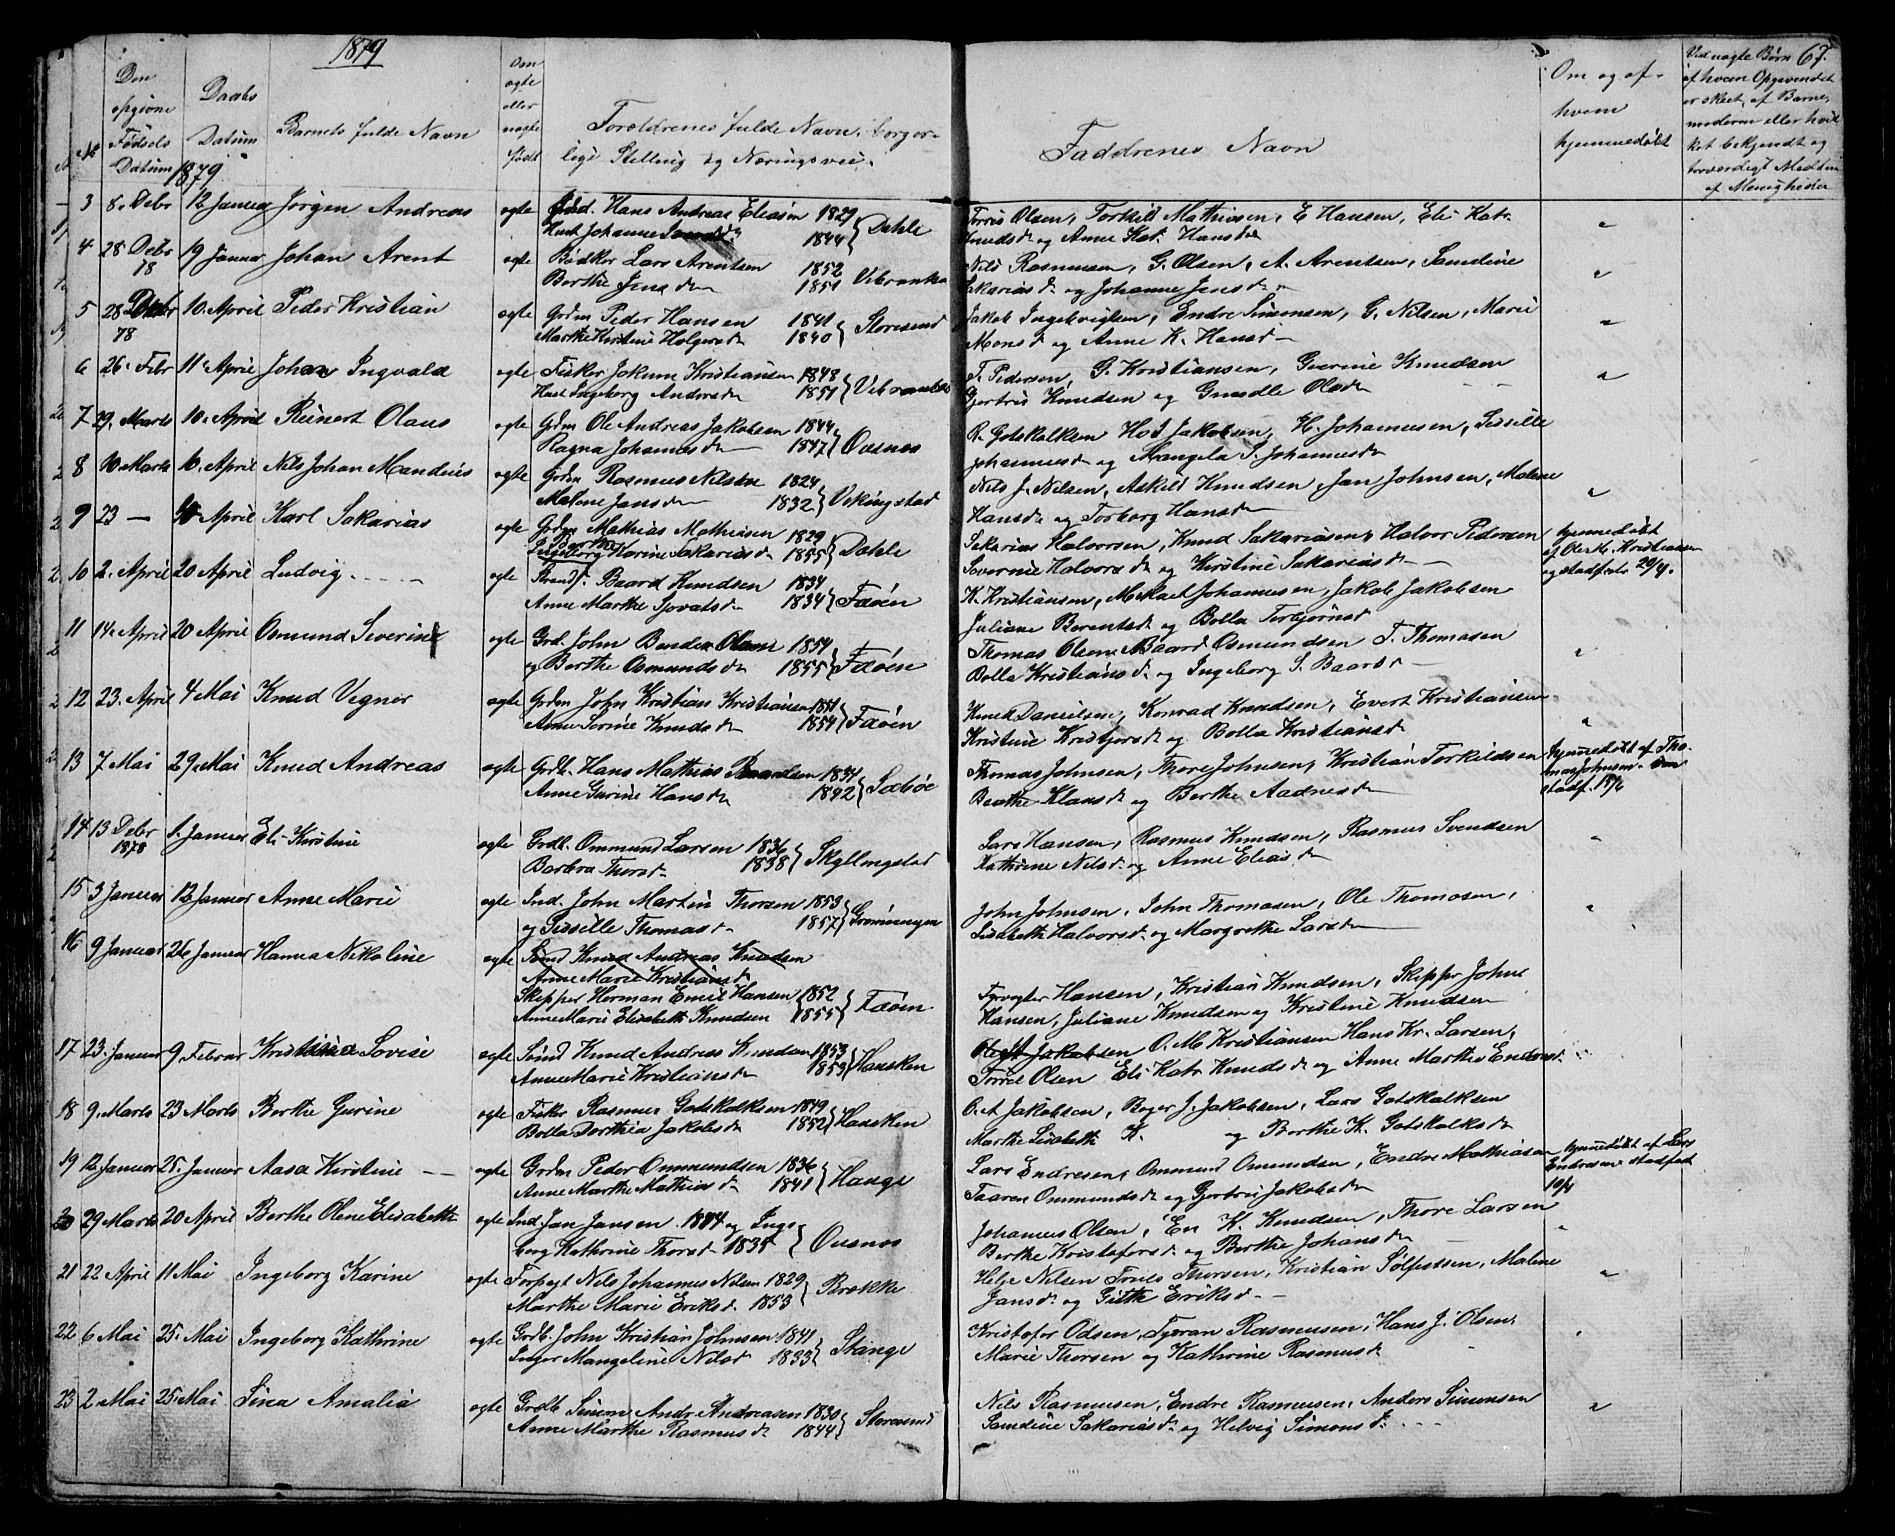 1879
67.
No
Den opgivne Fødsels Datum
Daabs Datum
1879
Barnets fulde Navn
Om ægte eller uægte født
Forældrenes fulde Navn, borger-
lige Stelling og Næringsvei.
Faddrenes Navn
Om og af hvem hjemmedøbt
Ved uægte Børn af hvem Opgivendet er skeet, af Barne moderen eller hvil ket bekjendt og troværdigt Medlem af Menigheden
3 8. Debr 12 Januar Jørgen Andreas ægte Hans Andreas Eliasen 1829 Dahle Torris Olsen, Torkild Mathiesen, E Hansen, Eli Katr
Hust Johanne 1844 Knudsd og Anne Kat. Hansd
4 28 Debr 78 19 Januar Johan Arent ægte Bødker Lars Arentsen 1852 Vibranka Nils Rasmussen, G. Olsen, A. Arentsen, Samdine
Berthe Jensd 1851 Sakariasd og Johanne Jensd
5 28 Debr 78 10 April Peder Kristian ægte Grdm Peder Hansen 1841 Storesund Jakob Ingebrigtsen, Endre Simonsen, G. Nilsen, Marie
Marthe Kirstine Holgersd 1840 Monsd og Anne K. Hansd
6 26. Febr 11. April Johan Ingvald ægte Fisker Jokum Kristiansen 1848 T. Pedersen, G. Kristiansen, Gurine Knudsen
Hust Ingeborg Andersd 1851 Gjertrud Knudsen og Gunnille Olsd
7 29. Marts 10. April Reinert Olaus ægte Grdm Ole Andreas Jakobsen 1844 Ousnes R. Gotskalksen H. Johannesen, Sissille
Ragna Johannesd 1847 Johannesd og Mangela S. Johannesd
8 10 Marts 10. April Nils Johan Mandius ægte Grdm Rasmus Nilsen 1824 Vikingstad Nils J. Nilsen, Askild Knudsen, Jan Johnsen, Malene
Malene Jansd 1832 Hansd og Torborg Hansd
9 23 — April Karl Sakarias ægte Grdm Mathias Mathiasen 1829 Dahle Sakarias Halvorsen, Knud Sakariasen, Halvor Pedersen
Ingeborg Karine Sakariasd 1855 Severine Halvorsd og Kirstine Sakariasd
hjemmedøbt af Ole M. Kristiansen og stadfæstet 20/4.
10 2. April 20 April Ludvig ægte Strands. Baard Knudsen 1834 Faøen K. Kristiansen, Mikael Johannesen, Jakob Jakobsen
Anne Marthe Sjovatsd 1834 Juliane Berentsd og Bolla Torbjørnsd
11 14. April 20 April Osmund Severin ægte Grd. John Bendex Olsen 1851 Faøen Thomas Olsen, Baard Osmundsen T. Thomasen
og Berthe Osmundsd 1855 Bolla Kristiansd og Ingeborg S. Baardsd
12 23. April 4 Mai Knud Vegner ægte Grdm John Kristian Kristiansen 1851 Faøen Knud Danielsen, Konrad Knudsen, Evert Kristiansen
Anne Serine Knudsd 1854 Kristine Kristofersd og Bolla Kristiansd
13 7 Mai 29. Mai Knud Andreas ægte Grdb. Hans Mathias Baardsen 1831 Sæbøe Thomas Johnsen, Thore Johnsen, Kristian Torkildsen
Anne Gurine Hansd 1842 Berthe Klausd og Berthe Aadnesd
hjemmedøbt af Thomas Johnsen
stadf.
14 13 Debr 1878 1. Januar Eli Kirstine ægte Grdb. Ommund Larsen 1836 Skyllingstad Lars Hansen, Rasmus Knudsen, Rasmus Svendsen
Barbra Thorsd 1838 Kathrine Nilsd og Anne Eliasd
15 3 Januar 12 Januar Anne Marie ægte Ind. John Martin Thorsen 1853 Grønningen John Johnsen, John Thomasen, Ole Thomasen,
og Sissille Thomasd 1857 Lisabeth Halvorsd og Margrethe Larsd
16 9 Januar 26 Januar Hanna Nikoline ægte Knud Andreas Knudsen
Anne Marie Kristiansd
Skipper Herman Emil Hansen 1852 Faøen Fyrvogter Hansen, Kristian Knudsen, Skipper John
Anne Marie Elisabeth Knudsen 1855 Hansen, Juliane Knudsen og Kristine Knudsen
17 23. Januar 9. Februar Lovise ægte Knud Andreas Knudsen 1853 Hansken Jakobsen O. M. Kristiansen Hans Kr. Larsen,
Anne Marie Kristiansd 1853 Torris Olsen Eli Katr Knudsd og Anne Marthe Endresd
18 9. Marts 23 Marts Berthe Gurine ægte Fisker Rasmus Godskalksen 1849 Hansken O. A Jakobsen, Roger J. Jakobsen, Lars Gotskalksen
Bolla Dorthea Jakobsd 1852 Marthe Lisabeth K. og Berthe K. Gotskalksd
19 12 Januar 25. Januar Aasa Kirstine ægte Grdm Peder Ommundsen 1836 Hauge Lars Endresen, Ommund Omundsen, Endre Mathiasen
Anne Marthe Mathiasd 1841 Taaren Ommundsd og Gjertrui Jakobsd
hjemmedøbt af Lars Endresen stadfæst 10/4
20 29 Marts 20 April Berthe Oline Elisabeth ægte Ind Jan Jansen 1844 og Inge- Ousnes Johannes Olsen, K. Knudsen, Thore Larsen
borg Kathrine Thorsd 1835 Berthe Kristofersd og Berthe Johansd
21 22 April 11 Mai Ingeborg Karine ægte Forpagt Nils Johannes Nilsen 1829 Brekke Helje Nilsen Truls Thorsen, Kristian Solfestsen, Malene
Marthe Marie Eriksd 1853 Jansd og Gitle Eriksd
22 6 Mai 25. Mai Ingeborg Kathrine ægte Grdb. John Kristian Johnsen 1841 Stange Kristofer Odsen, Tjeran Rasmussen, Hans J. Olsen,
Inger Mangeline Nilsd 1833 Marie Thorsen og Kathrine Rasmusd
23 2 Mai 25. Mai Sina Amalia ægte Grdb Simon Andr Andreasen 1830 Storesund Nils Rasmussen, Endre Rasmussen, Anders Simonsen
Anne Marthe Rasmusd 1844 Samdine Sakariasd og Helvig Simonsd